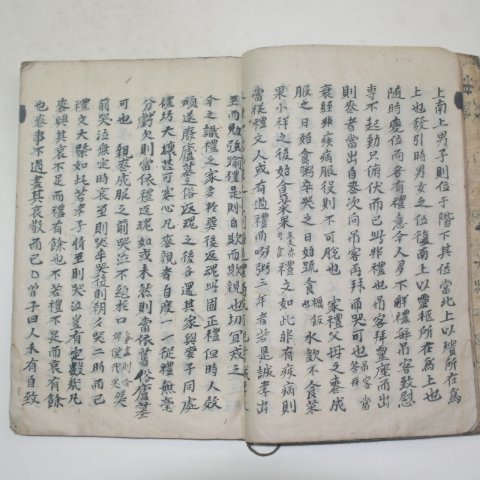 上南上男子則位于階下其位當北上以殯所在爲
上也發引時男女之位復南上以靈柩所在爲上也
隨時變位而各有禮意今人多不解禮每吊客致慰
專不起動只俯伏而已此非禮也吊客拜靈座而出
則喪者當出自喪次向吊客再拜而哭可也吊客當答拜
衰絰非疾病服役則不可脫也 家禮父母之喪成
服之日始食粥卒哭之日始疏食糲飯水飮不食菜
果小祥之後始食菜果羹亦可食禮文如此非有疾病則
當從禮文人或有過禮而啜粥三年者若是誠孝出
至而勉强踰禮是則自欺而欺親也切宜戒之
今之識禮之家多於葬後返魂此固正禮但時人效
順遂廢廬墓之俗返魂之後各還其家與妻子同處
禮坊大壞甚可寒心凡喪親者自度一一從禮無毫
分虧欠則當依禮返魂如或未然則當依舊俗廬墓
可也 親喪成服之前哭泣不絶於口氣盡則令婢僕代哭葬
前哭泣無定時哀至則哭卒哭後則朝夕哭二時而已
禮文大槩如此若孝子情至則哭泣豈有定數哉凡
喪與其哀不足而禮有餘也不若禮不足而哀有餘
也喪事不過盡其哀敬而已○曾子曰人未有自致